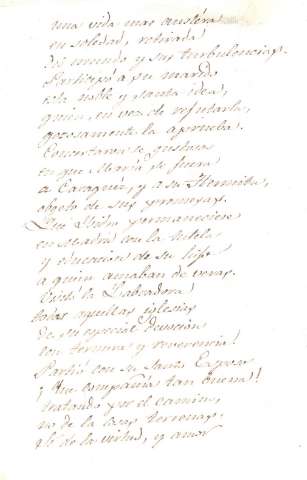 una vida mas austéra
en soledad, retirada
del mundo y sus turbulencias.
Participó a su marido
esta noble y santa idea,
quien en vez de refutarla,
gozosamente la aprueba.
Concertaron gustosos
en que María se fuera
a Caraquiz, y a su Hermita,
objeto de sus promesas.
Que Isidro permaneciese
en Madrid con la tutela
y educacion de su hijo
a quien amaban de veras.
Visitó la Labradora
todas aquellas iglesias
de su especial devocion
con ternura y reverencia!
Partió con su Santo Esposo
¡Que compañia tan buena!!
tratando por el camino,
no de las cosas terrenas.
sí de la virtud, y amor